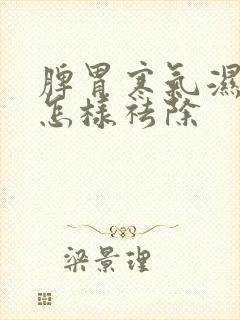 脾胃寒氣濕
怎樣祛除
梁景理